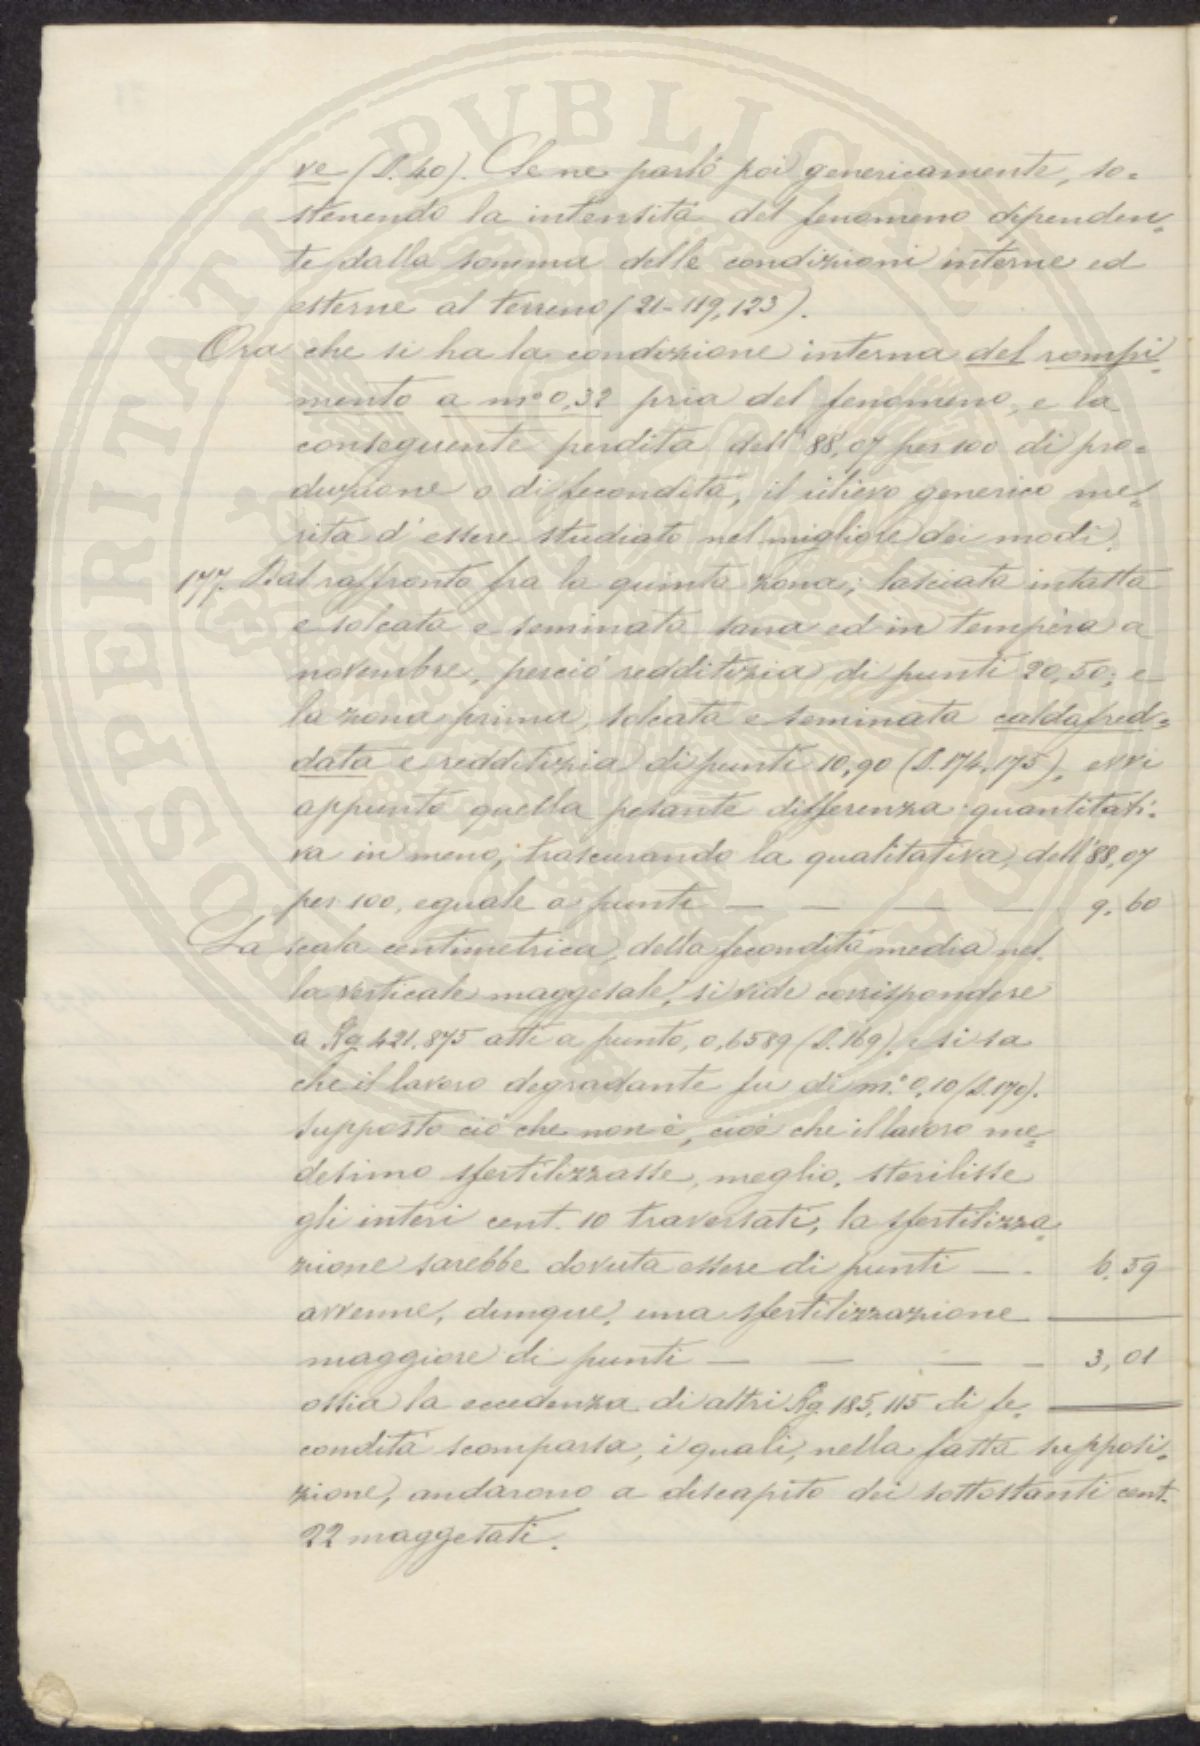 ve (S. 40). Se ne parlò poi genericamente, so=
stenendo la intensità del fenomeno dipenden=
te dalla somma delle condizioni interne ed
esterne al terreno (21-119, 123).
Ora che si ha la condizione interna del rompi=
mento a m.º 0,32 pria del fenomeno, e la
conseguente perdita dell'88,07 per 100 di pro=
duzione o di fecondità, il rilievo generico me=
rita d'essere studiato nel migliore dei modi.
177. Dal raffronto fra la quinta zona, lasciata intatta
e solcata e seminata sana ed in tempèra a
novembre, perciò redditizia di punti 20,50; e
la zona prima, solcata e seminata caldafred=
data e redditizia di punti 10,90 (S. 174, 175), evvi
appunto quella pesante differenza quantitati=
va in meno, trascurando la qualitativa, dell'88,07
per 100, eguale a punti — — — — 9,60
La scala centimetrica, della fecondità media nel=
la verticale maggesale, si vide corrispondere
a Kg. 421,875 atti a punto, 0,6589 (S. 169), e si sa
che il lavoro degradante fu di m.º 0,10 (S. 170).
Supposto ciò che non è, cioè che il lavoro me=
desimo sfertilizzasse, meglio, sterilisse
gli interi cent. 10 traversati, la sfertilizza=
zione sarebbe dovuta essere di punti — . 6,59
avvenne, dunque, una sfertilizzazione
maggiore di punti — — — — 3,01
ossia la eccedenza di altri Kg. 185,115 di fe=
condità scomparsa, i quali, nella fatta supposi=
zione, andarono a discapito dei sottostanti cent.
22 maggetati.
SOSPERITATI PVBLICAE